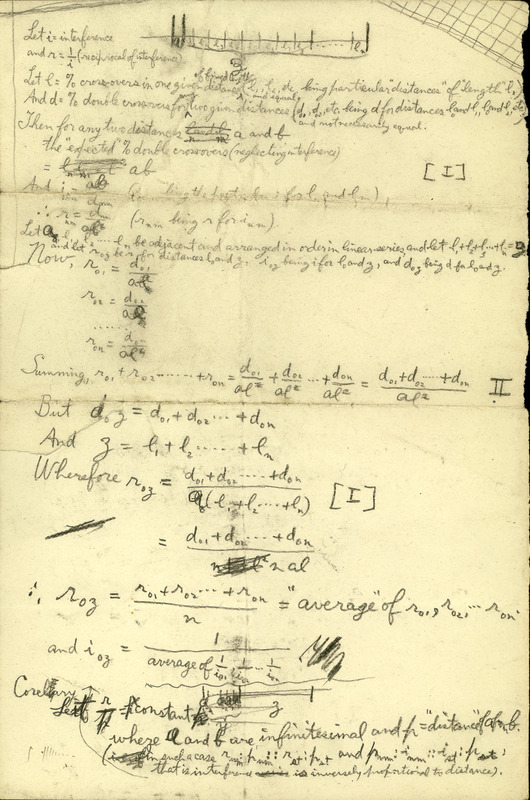 Let i = interference
and r = 1/i (reciprocal of interference)
Let l = % crossovers in one given distance (l₁, l₂, etc. being particular distances of "length" l),
And d = % double crossovers for two given distances (d₀₁, d₀₂, etc. being d for distances l₀ and l₁, l₀ and l₂, etc.
and not necessarily equal.
Then for any two distances a and b
the "expected" % double crossovers (neglecting interference)
= ab
[I]
And i = ab
(rₙₘ being r for iₙₘ).
Let l₁, l₂ ..... lₙ be adjacent and arranged in order in linear series and let l₁+l₂+l₃...+lₙ = z
and let r₀z be r for distances l₀ and z, i₀z being i for l₀ and z, and d₀z being d for l₀ and z.
Now, r₀₁ = d₀₁/al
r₀₂ = d₀₂/al
......
r₀ₙ = d₀ₙ/al
Summing, r₀₁ + r₀₂ ...... + r₀ₙ = d₀₁/al + d₀₂/al ... + d₀ₙ/al = d₀₁+d₀₂ ..... +d₀ₙ/al II
But d₀z = d₀₁ + d₀₂ ..... + d₀ₙ
And z = l₁ + l₂ ..... + lₙ
Wherefore r₀z = d₀₁+d₀₂ ..... +d₀ₙ/a(l₁+l₂ ..... +lₙ) [I]
= d₀₁+d₀₂ ..... +d₀ₙ/n al
∴ r₀z = r₀₁+r₀₂ ... +r₀ₙ/n = "average" of r₀₁, r₀₂, ... r₀ₙ.
and i₀z = 1/average of 1/i₀₁, 1/i₀₂ ... 1/i₀ₙ
z
Corollary
Let r = p constant
where a and b are infinitesimal and p = "distance" of a from b.
(in such a case rₙₘ : pₙₘ :: rₛₜ : pₛₜ and pₙₘ : iₙₘ :: iₛₜ : pₛₜ,
that is interference is inversely proportional to distance).